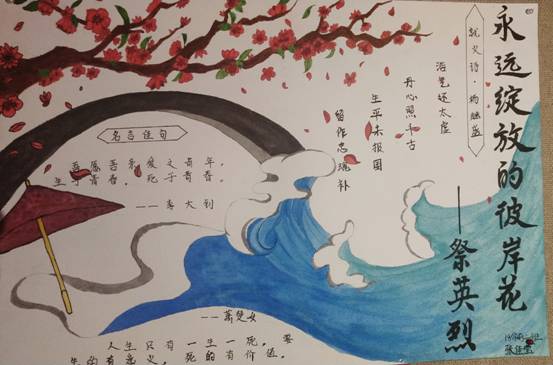 永远绽放的彼岸花
——祭英烈
就义诗·杨继盛
浩气还太虚
丹心照千古
生平未报国
留作忠魂补
名言佳句
吾愿吾亲爱之青年，
生于青春，死于青春。
——李大钊
——萧楚女
人生只有一生一死，要
生的有意义，死的有价值。